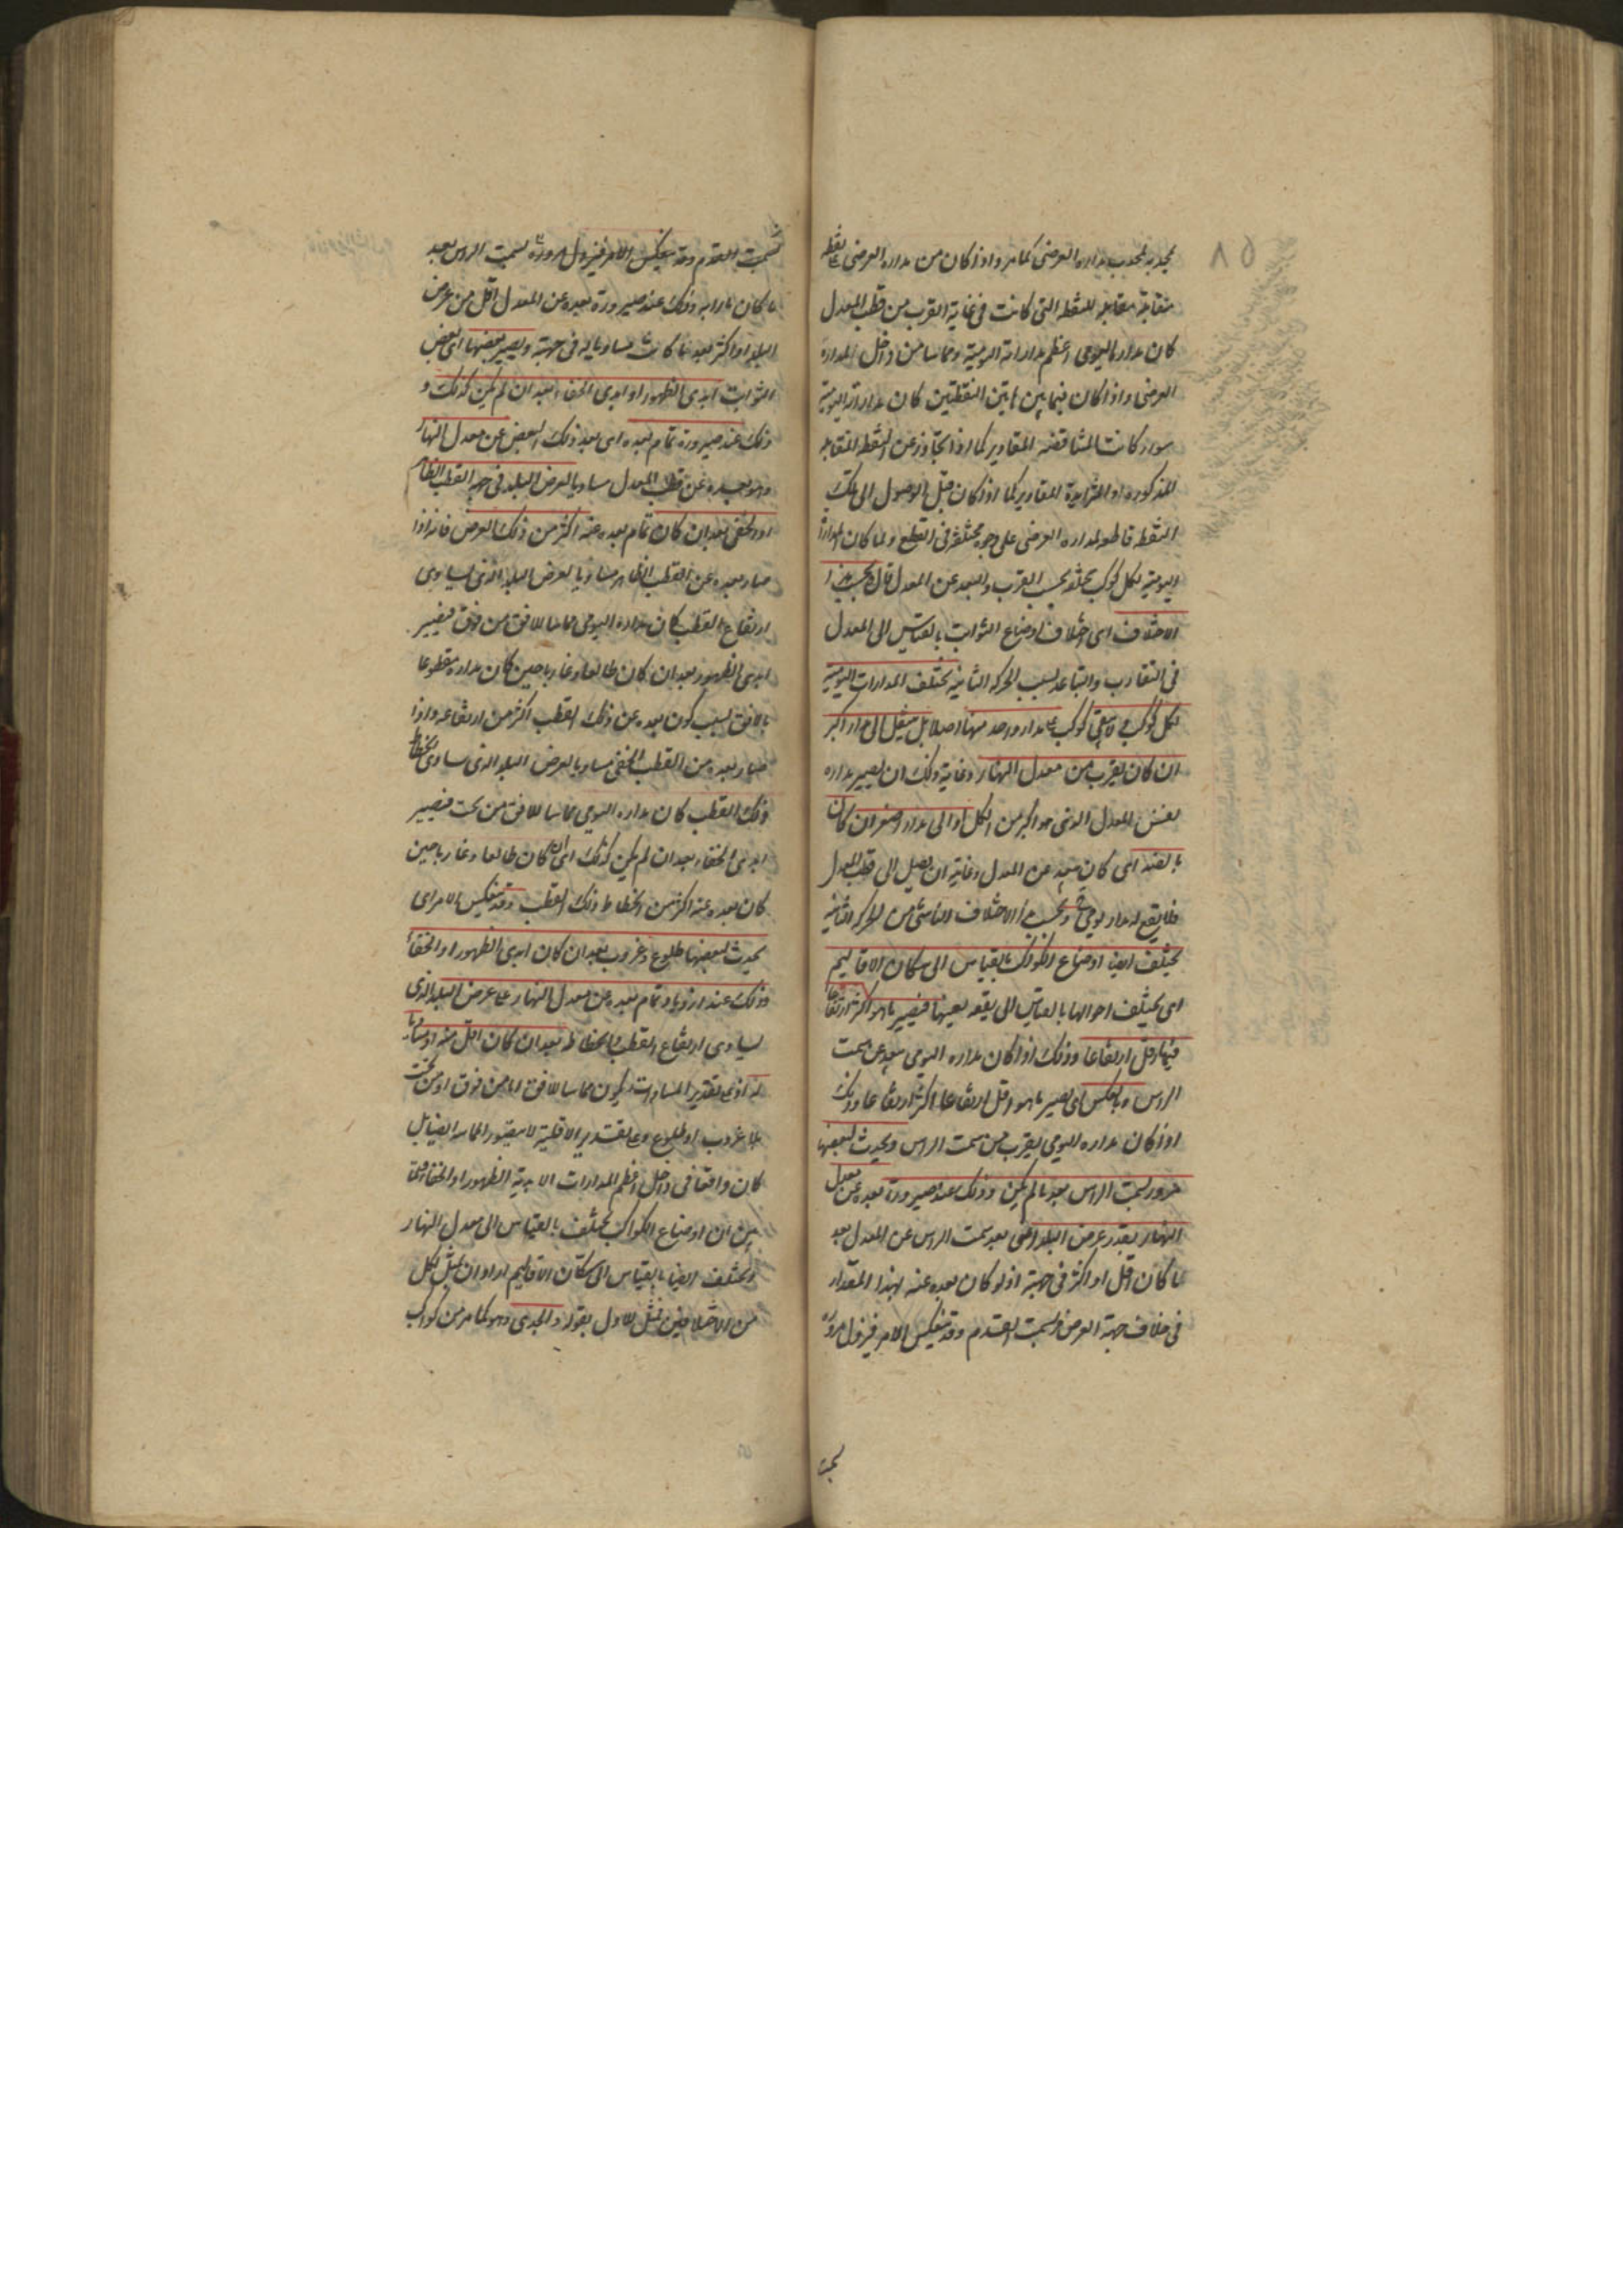 ٨٥
بمحدبه لمحدب مداره العرضى كما مر واذا كان من مداره العرضى على نقطة
متقابلة مقابلة للنقطة التى كانت فى غاية القرب من قطب المعدل
كان مداره اليومى اعظم مداراته اليومية ومماسا من داخل لمداره
العرضى واذا كان فيما بين هاتين النقطتين كان مداراته اليومية
سواء كانت المتناقضة المقادير كما اذا تجاوز عن النقطة المقابلة
المذكورة او المتزايدة المقادير كما اذا كان قبل الوصول الى تلك
النقطة قاطعة لمداره العرضى على وجوه مختلفة فى القطع ولما كان المدارات
اليومية لكل كوكب مختلفة بحسب القرب والبعد عن المعدل قال وبحسب هذا
الاختلاف اى اختلاف اوضاع الثوابت بالقياس الى المعدل
فى التقارب والتباعد بسبب الحركة الثانية تختلف المدارات اليومية
لكل كوكب فلا يبقى كوكب على مدار واحد منها اصلا بل ينتقل الى مدار اكبر
ان كان يقرب من معدل النهار وغاية ذلك ان يصير مداره
نفس المعدل الذى هو اكبر من الكل او الى مدار اصغر ان كان
بالضد اى كان يبعد عن المعدل وغايته ان يصل الى قطب المعدل
فلا يقع له مدار يومى وبحسب هذا الاختلاف الناشئ من الحركة الثانية
يختلف ايضا اوضاع الكواكب بالقياس الى سكان الاقاليم
اى يختلف احوالها بالقياس الى بقعة بعينها فيصير ما هو اكثر ارتفاعا
فيها اقل ارتفاعا وذلك اذا كان مداره اليومى يبعد عن سمت
الراس او بالعكس اى يصير ما هو اقل ارتفاعا اكثر ارتفاعا وذلك
اذا كان مداره اليومى يقرب من سمت الراس ويحدث لبعضها
مرور بسمت الراس بعد ما لم يكن وذلك عند صيرورة بعده عن معدل
النهار بقدر عرض البلد اعنى بعد سمت الراس عن المعدل بعد
ما كان اقل او اكثر فى جهته اذ لو كان بعده عنه بهذا المقدار
فى خلاف جهة العرض لسمت القدم وقد ينعكس الامر فيزول مروره
لسمت القدم وقد ينعكس الامر فيزول مروره بسمت الراس بعد
ما كان مارا به وذلك عند صيرورة بعده عن المعدل اقل من عرض
البلد او اكثر بعد ما كانت مساويا له فى جهته ويصير بعضها اى بعض
الثوابت ابدى الظهور او ابدى الخفاء بعد ان لم يكن كذلك و
ذلك عند صيرورة تمام بعده اى بعد ذلك البعض عن معدل النهار
وهو بعده عن قطب المعدل مساويا لعرض البلد فى جهة القطب الظاهر
او الخفى بعد ان كان تمام بعده عنه اكثر من ذلك العرض فانه اذا
صار بعده عن القطب الظاهر مساويا لعرض البلد الذى يساوى
ارتفاع القطب كان مداره اليومى مماسا للافق من فوق فيصير
ابدى الظهور بعد ان كان طالعا وغاربا حين كان مداره مقطوعا
بالافق بسبب كون بعده عن ذلك القطب اكثر من ارتفاعه واذا
صار بعده من القطب الخفى مساويا لعرض البلد الذى يساوى انحطاط
ذلك القطب كان مداره اليومى مماسا للافق من تحت فيصير
ابدى الخفاء بعد ان لم يكن كذلك اى كان طالعا وغاربا حين
كان بعده عنه اكثر من انحطاط ذلك القطب وقد ينعكس الامر اى
يحدث لبعضها طلوع وغروب بعد ان كان ابدى الظهور او الخفاء
وذلك عند ازدياد تمام بعده عن معدل النهار على عرض البلد الذى
يساوى ارتفاع القطب وانحطاطه بعد ان كان اقل منه او مساويا
له اذ على تقدير المساواة يكون مماسا للافق اما من فوق او من تحت
بلا غروب او طلوع وعلى تقدير الاقلية لا يتصور المماسة ايضا بل
كان واقعا فى داخل اعظم المدارات الابدية الظهور او الخفاء ولما
بين ان اوضاع الكواكب تختلف بالقياس الى معدل النهار
وتختلف ايضا بالقياس الى سكان الاقاليم اراد ان يمثل لكل
من الاختلافين فمثل للاول بقوله والجدى وهو كما مر من كواكب